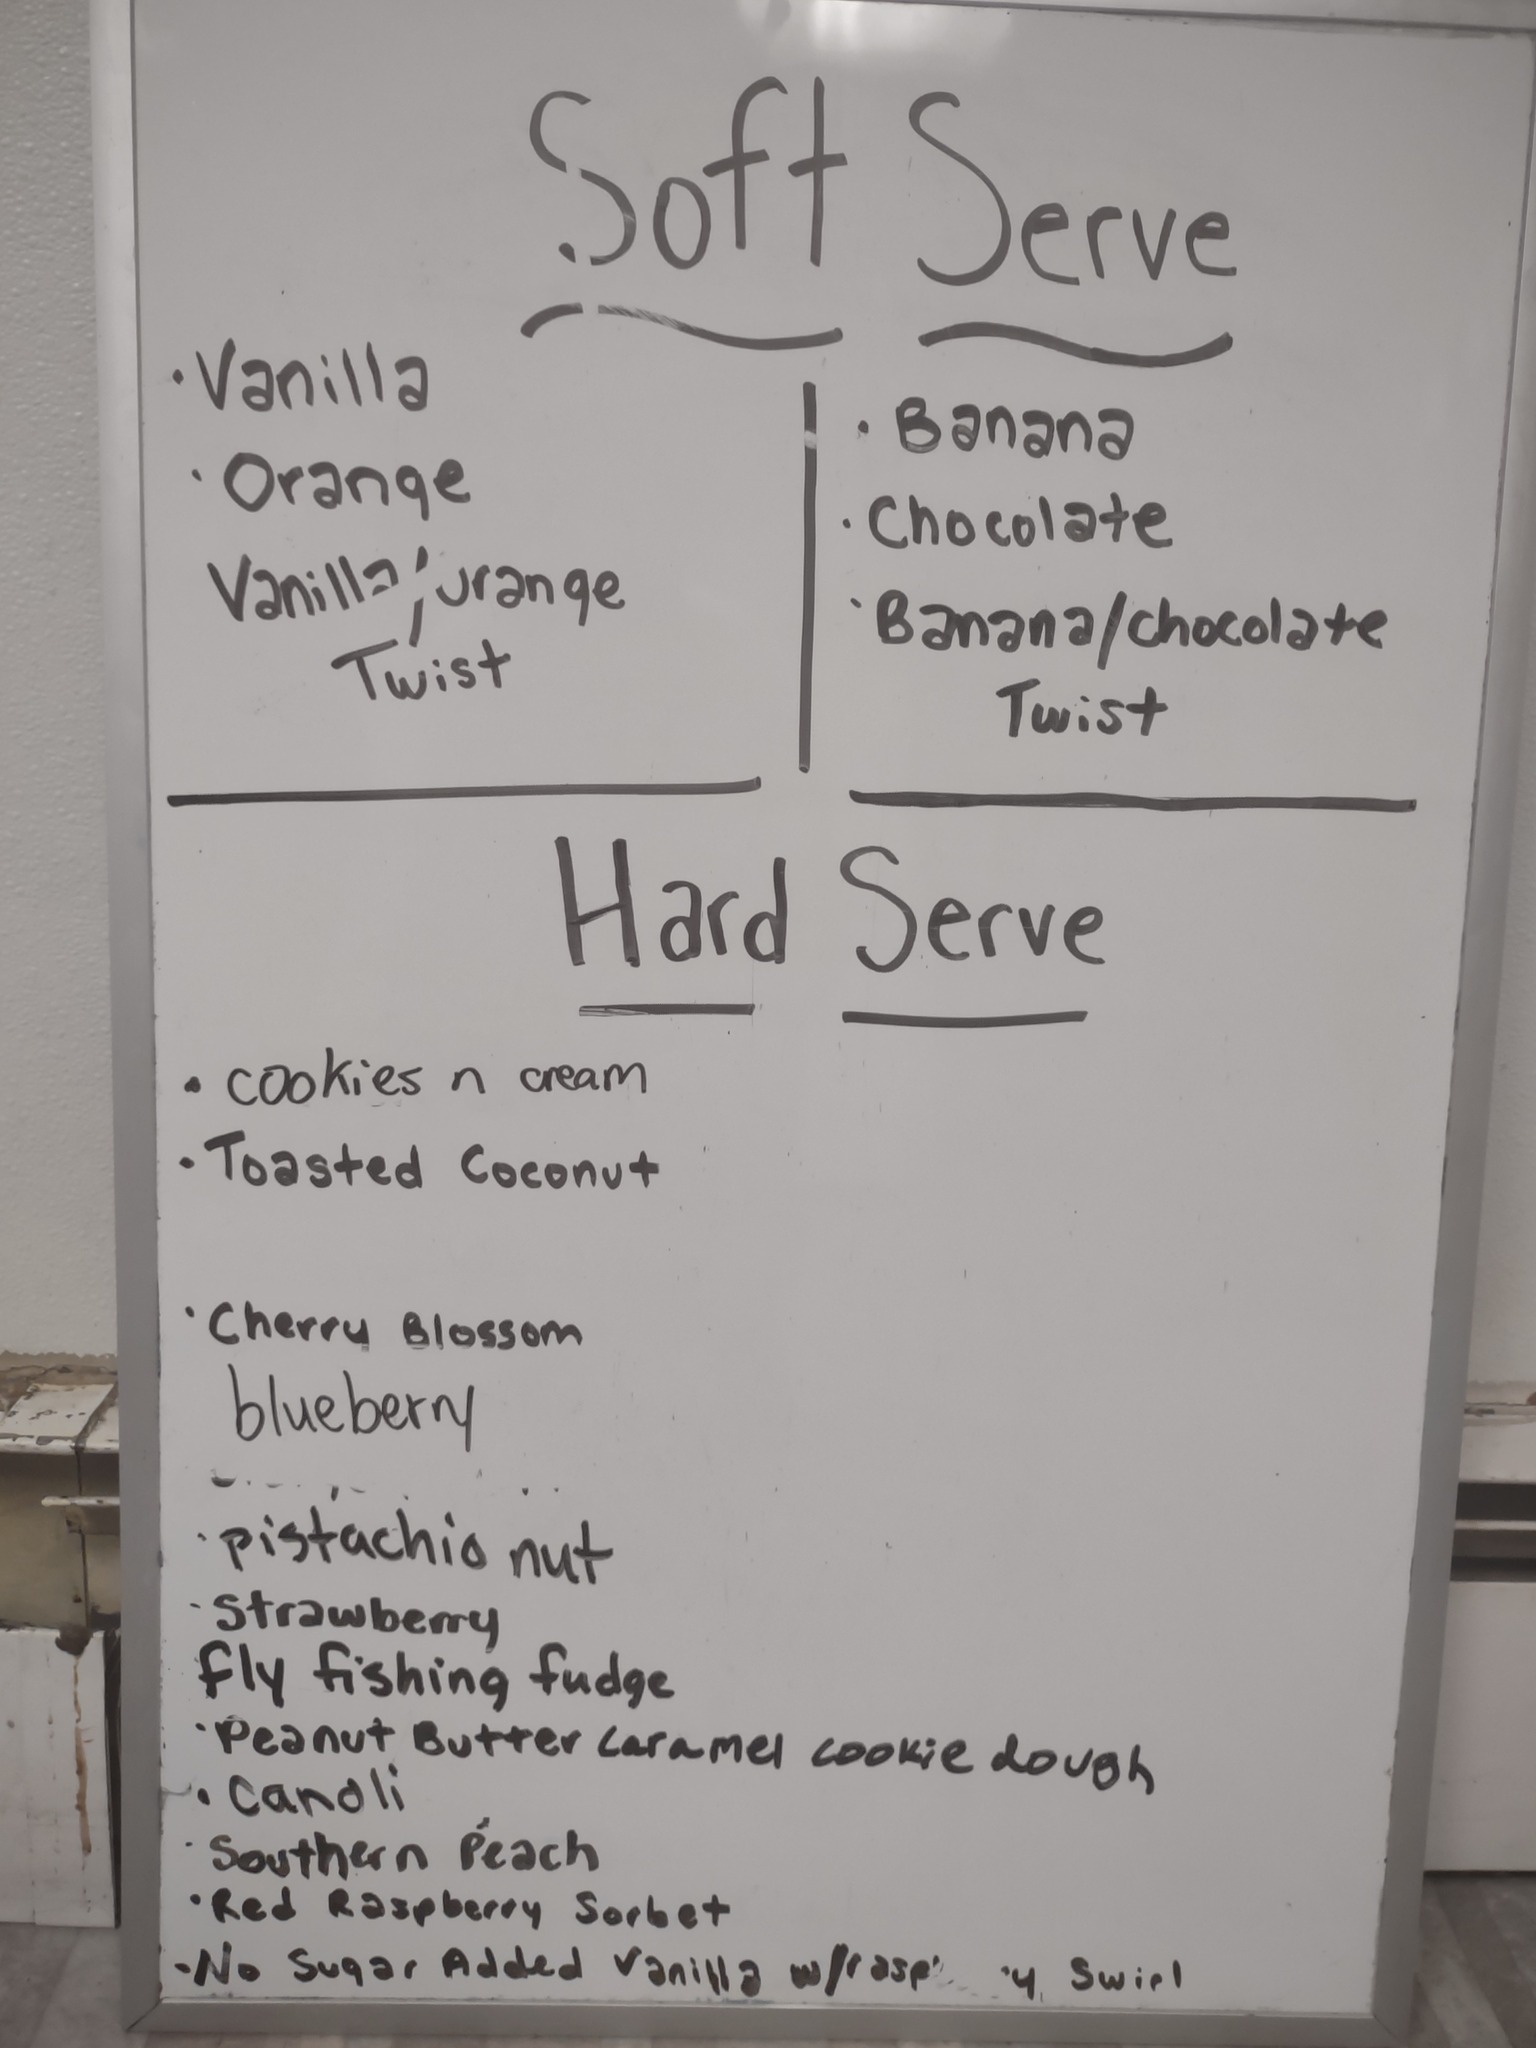 Soft Serve
· Vanilla
· Orange
Vanilla/orange
Twist
· Banana
· Chocolate
· Banana/chocolate
Twist
Hard Serve
· cookies n cream
· Toasted Coconut
· Cherry Blossom
blueberry
· pistachio nut
· Strawberry
fly fishing fudge
· Peanut Butter Caramel cookie dough
· Canoli
· Southern Peach
· Red Raspberry Sorbet
- No Sugar Added Vanilla w/rasp y Swirl